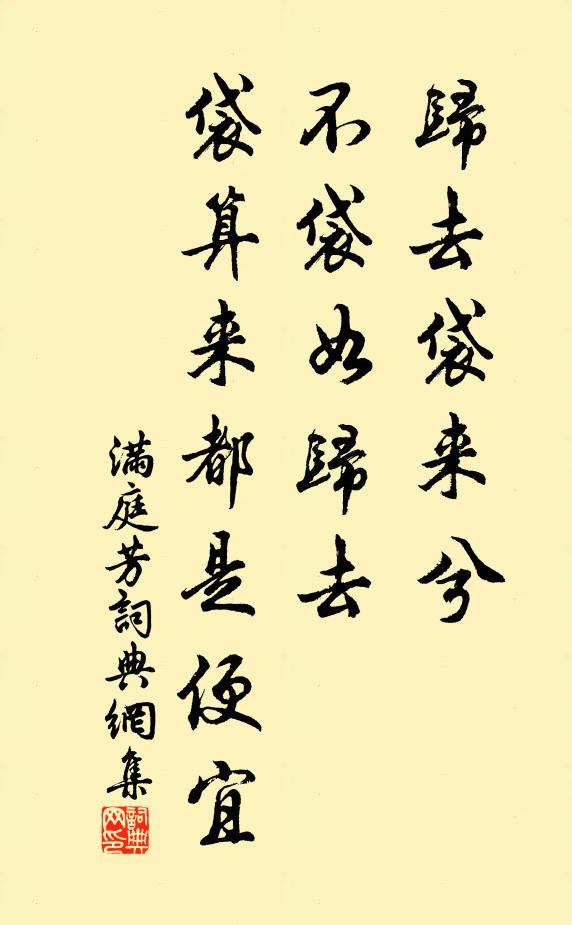 歸去袋来兮
不袋如歸去
袋算来都是便宜
滿庭芳詞典網集
詞典网印